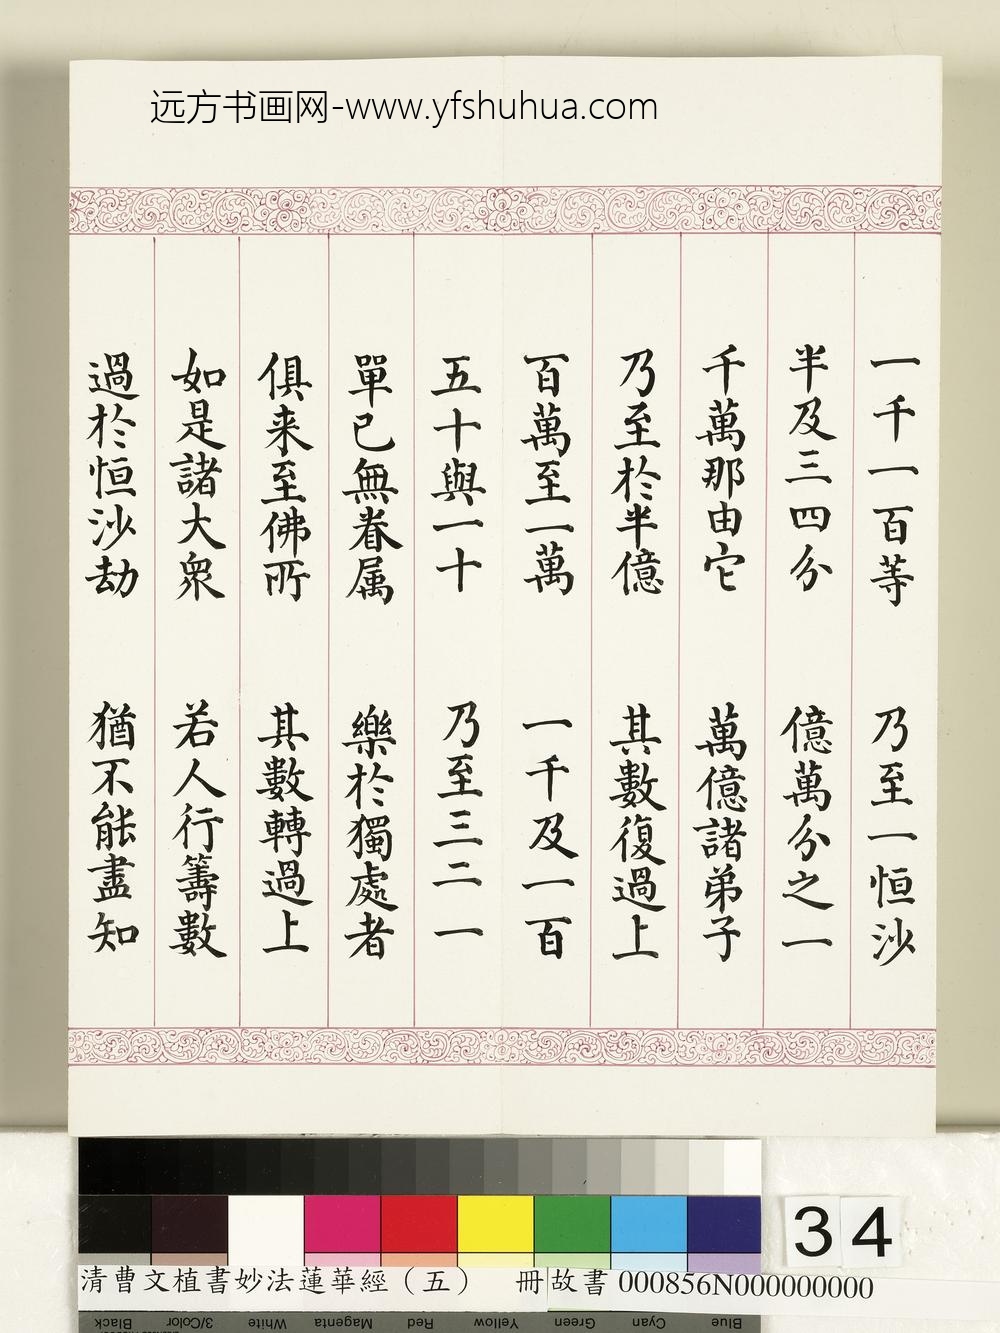 远方书画网-www.yfshuhua.com
一千一百等 乃至一恒沙
半及三四分 億萬分之一
千萬那由它 萬億諸弟子
乃至於半億 其數復過上
百萬至一萬 一千及一百
五十與一十 乃至三二一
單已無眷属 樂於獨處者
俱来至佛所 其數轉過上
如是諸大衆 若人行籌數
過於恒沙劫 猶不能盡知
34
清曹文植書妙法蓮華經（五） 冊 故書 000856N000000000
Black 3/Color White Magenta Red Yellow Green Cyan Blue